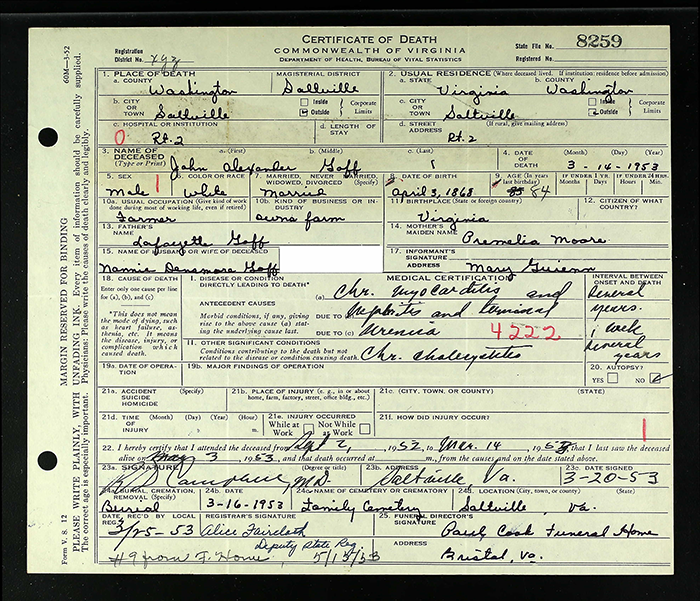 CERTIFICATE OF DEATH
COMMONWEALTH OF VIRGINIA
DEPARTMENT OF HEALTH, BUREAU OF VITAL STATISTICS
Registration District No. xyz
State File No. 8259
Registered No.
60M—3-52
MARGIN RESERVED FOR BINDING
PLEASE WRITE PLAINLY, WITH UNFADING INK. Every item of information should be carefully supplied.
The correct age is especially important. Physicians: Please write the causes of death clearly and legibly.
Form V. S. 12
1. PLACE OF DEATH
a. COUNTY Washington
MAGISTERIAL DISTRICT Saltville
b. CITY OR TOWN Saltville
Inside Outside Corporate Limits
c. HOSPITAL OR INSTITUTION Rt. 2
d. LENGTH OF STAY
2. USUAL RESIDENCE (Where deceased lived. If institution: residence before admission)
a. STATE Virginia
b. COUNTY Washington
c. CITY OR TOWN Saltville
Inside Outside Corporate Limits
d. STREET ADDRESS (If rural, give mailing address) Rt. 2
0
3. NAME OF DECEASED (Type or Print)
a. (First) b. (Middle) c. (Last)
John Alexander Goff
4. DATE OF DEATH (Month) (Day) (Year)
3-14-1953
5. SEX Male
1
6. COLOR OR RACE White
7. MARRIED, NEVER MARRIED, WIDOWED, DIVORCED (Specify) Married
8. DATE OF BIRTH April 3, 1868
9. AGE (In years last birthday) 84
IF UNDER 1 YR. M D
IF UNDER 24 HRS. H M
10a. USUAL OCCUPATION (Give kind of work done during most of working life, even if retired) Farmer
10b. KIND OF BUSINESS OR INDUSTRY owns farm
11. BIRTHPLACE (State or foreign country) Virginia
12. CITIZEN OF WHAT COUNTRY?
13. FATHER'S NAME Lafayette Goff
14. MOTHER'S MAIDEN NAME Premelia Moore
15. NAME OF HUSBAND OR WIFE OF DECEASED
Nannie Densmore Goff
17. INFORMANT'S SIGNATURE
ADDRESS Mary
18. CAUSE OF DEATH
Enter only one cause per line for (a), (b), and (c)
*This does not mean the mode of dying, such as heart failure, asthenia, etc. It means the disease, injury, or complication which caused death.
MEDICAL CERTIFICATION
INTERVAL BETWEEN ONSET AND DEATH
I. DISEASE OR CONDITION DIRECTLY LEADING TO DEATH*
(a) Chr. myocarditis and
Several years.
ANTECEDENT CAUSES
Morbid conditions, if any, giving rise to the above cause (a) stating the underlying cause last.
DUE TO Nephritis and terminal
DUE TO (c) Uremia
4222
1 week
II. OTHER SIGNIFICANT CONDITIONS
Conditions contributing to the death but not related to the disease or condition causing death.
Chr. cholecystitis
several years
19a. DATE OF OPERATION
19b. MAJOR FINDINGS OF OPERATION
20. AUTOPSY?
YES NO
21a. ACCIDENT SUICIDE HOMICIDE (Specify)
21b. PLACE OF INJURY (e. g., in or about home, farm, factory, street, office bldg., etc.)
21c. (CITY, TOWN, OR COUNTY) (STATE)
21d. TIME OF INJURY (Month) (Day) (Year) (Hour) m.
21e. INJURY OCCURRED
While at Work Not While at Work
21f. HOW DID INJURY OCCUR?
1
22. I hereby certify that I attended the deceased from Sept 2, 1952, to Mar. 14, 1953, that I last saw the deceased
alive on 3 1953, and that death occurred at m., from the causes and on the date stated above.
23a. SIGNATURE (Degree or title) M.D.
23b. ADDRESS Saltville, Va.
23c. DATE SIGNED 3-20-53
24a. BURIAL, CREMATION, REMOVAL (Specify) Burial
24b. DATE 3-16-1953
24c. NAME OF CEMETERY OR CREMATORY Family Cemetery
24d. LOCATION (City, town, or county) (State) Saltville, Va.
DATE REC'D BY LOCAL REG. 3/25-53
REGISTRAR'S SIGNATURE Alice Faircloth
Deputy State Reg
25. FUNERAL DIRECTOR'S SIGNATURE Paul Cook Funeral Home
ADDRESS Bristol, Va.
#9 from F. Home, 5/15/53